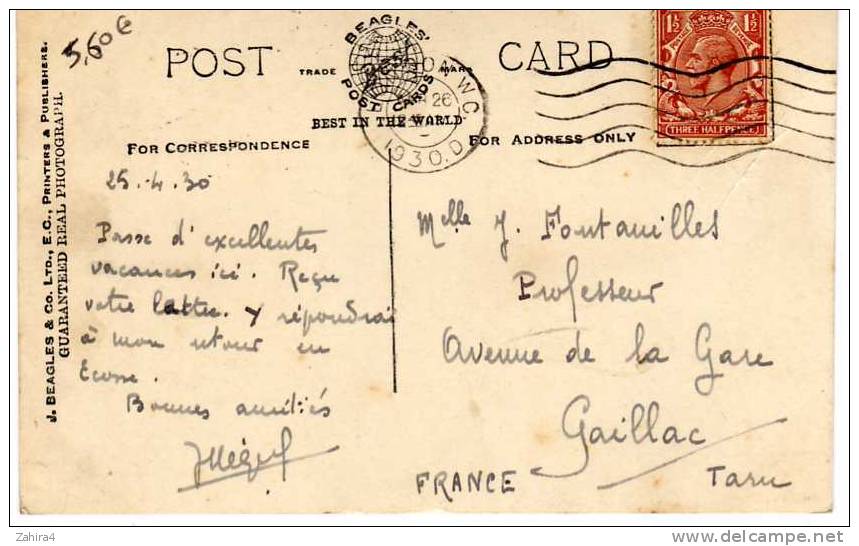 5,60€
POST CARD
BEAGLES'
POST CARDS
TRADE MARK
BEST IN THE WORLD
W.C.
26
1930.D
THREE HALFPENCE
1½ 1½
FOR CORRESPONDENCE
FOR ADDRESS ONLY
J. BEAGLES & CO. LTD., E.C., PRINTERS & PUBLISHERS.
GUARANTEED REAL PHOTOGRAPH.
25.4.30
Passe d'excellentes
vacances ici. Reçu
votre lettre. y répondrai
à mon retour en
Ecosse.
Bonnes amitiés
Melle J. Fontanilles
Professeur
Avenue de la Gare
Gaillac
Tarn
FRANCE
Zahira4
delcampe.net